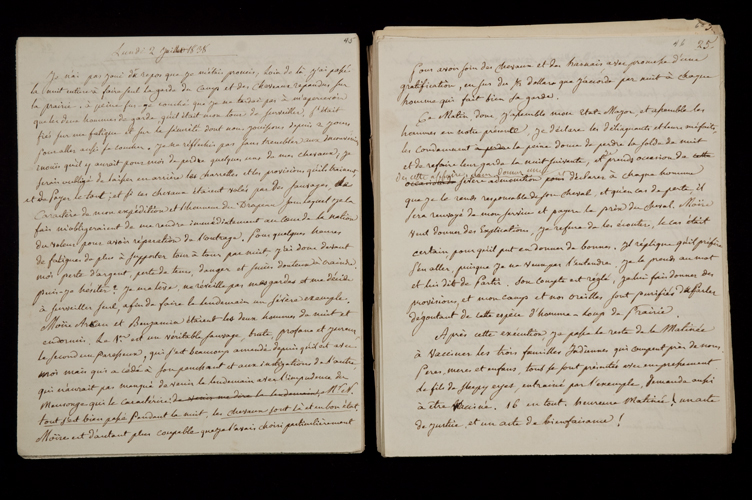 45
Lundi 2 Juillet 1838
Je n'ai pas joui du repos que je m'étois promis, loin de là, j'ai passé
la nuit entière à faire seul la garde du Camp et des Chevaux répandus sur
la prairie. à peine fus-je couché que je ne tardai pas à m'apercevoir
que les deux hommes de garde, qu'il était mon tour de surveiller, s'étaient
fiés sur ma fatigue et sur la sécurité dont nous jouissons depuis 2 jours
pour aller aussi se coucher. Je ne réfléchis pas sans trembler au
qu'il y aurait pour moi de perdre quelques uns de mes chevaux, je
serais obligé de laisser en arrière les charrettes et les provisions qu'ils traînent
et de payer le tout; et si ces chevaux étaient volés par des sauvages, le
Caractère de mon expédition et l'honneur du Drapeau sous lequel je la
fais m'obligeraient de me rendre immédiatement au coeur de la nation
du voleur pour avoir réparation de l'outrage. Pour quelques heures
de fatigues de plus à supporter tour à tour par nuit, j'ai donc devant
moi perte d'argent, perte de tems, danger et suites douteuses à craindre,
puis-je hésiter? Je me lève, ne réveille pas mes gardes et me décide
à surveiller seul, afin de faire le lendemain un sévère exemple.
Moïse et Benjamin étaient les deux hommes de nuit et
endormis. Le 1er est un véritable sauvage, brute, profane et
le second un paresseux, qui s'est beaucoup amendé depuis qu'il est avec
moi mais qui a cédé à son penchant et aux instigations de l'autre
qui n'aurait pas manqué de venir le lendemain avec l'impudence du
Mensonge qui le caractérise, me dire le lendemain, Mr N.
tout s'est bien passé pendant la nuit, les chevaux sont là et en bon état
Moïse est d'autant plus coupable que je l'avais choisi particulièrement
46
25.
Pour avoir soin des Chevaux et du harnais avec promesse d'une
gratification, en sus du ½ dollar que j'accorde par nuit à chaque
homme qui fait bien sa garde.
Ce Matin donc, j'assemble mon Etat-Major, et assemble les
hommes en notre présence. Je déclare les délinquants et leurs méfaits,
les condamnant à la peine double de perdre la solde de nuit
et de refaire leur garde la nuit suivante, et prends occasion de cette
sévère admonition pour déclarer à chaque homme
que je le rends responsable de son cheval, et qu'en cas de perte, il
sera renvoyé de mon service et payera le prix du cheval. Moïse
veut donner des Explications, je refuse de les écouter, le cas étant
certain pour qu'il put en donner de bonnes. Il réplique qu'il préfère
s'en aller, puisque je ne veux pas l'entendre. Je le prends au mot
et lui dit de Partir. Son compte est réglé, je lui fais donner des
provisions, et mon camp et nos oreilles sont purifiés du parler
dégoutant de cette espèce d'homme-loup de Prairie.
Après cette exécution, je passe le reste de la Matinée
à Vacciner les trois familles Indiennes qui campent près de nous.
Peres, meres et enfans, tous se sont présentés avec empressement
le fils de Sleepy eyes, entrainé par l'exemple, demanda aussi
à être Vacciné. 16 en tout. heureuse Matinée! un acte
de justice, et un acte de bienfaisance!